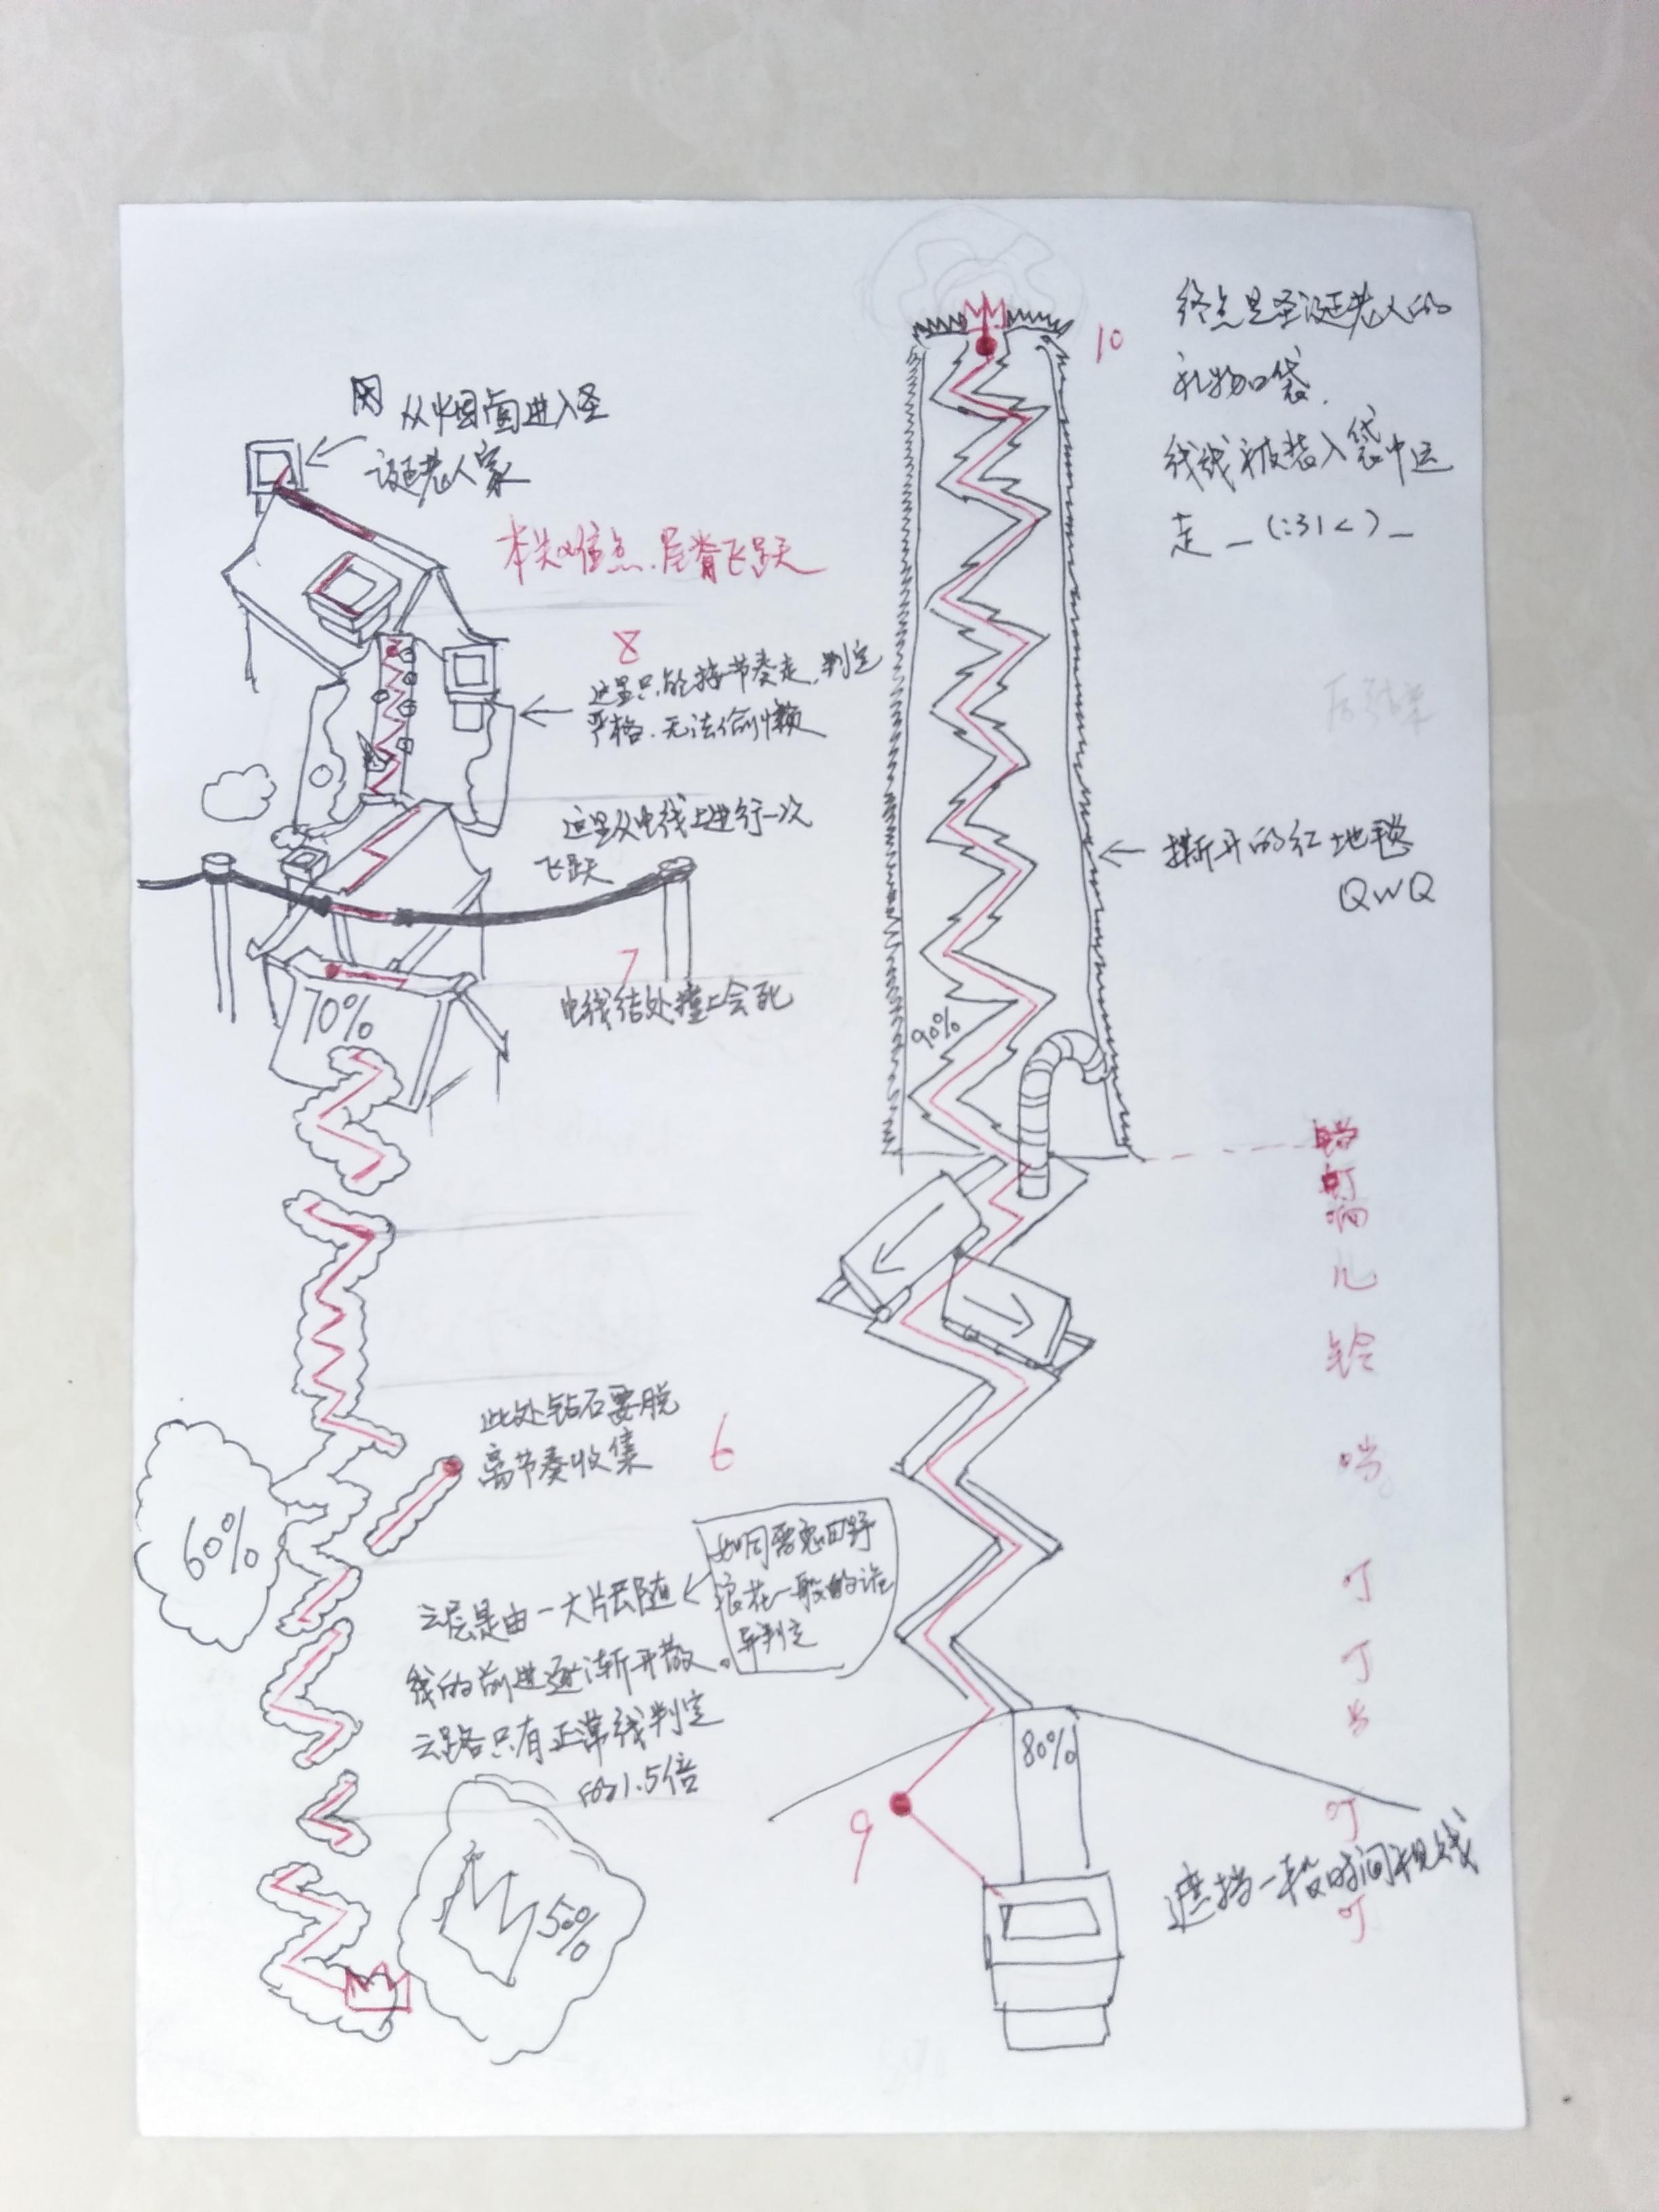 从烟囱进入圣
诞老人家
本关难点.屋脊飞跃天
8
这里只能按节奏走.判定
严格.无法偷懒
这里从电线上进行一次
飞跃
7
电线结处撞上会死
70%
此处钻石要脱
离节奏收集
6
60%
如同
田野
浪花一般的诡
异判定
云层是由一大片云随
线的前进逐渐开散。
云路只有正常线判定
的1.5倍
50%
10
终点是圣诞老人的
礼物口袋.
线线被装入袋中运
走_(:31<)_
撕开的红地毯
QWQ
90%
铛
叮
响
儿
铃
当
叮
叮
当
叮
叮
80%
9
遮挡一段时间视线